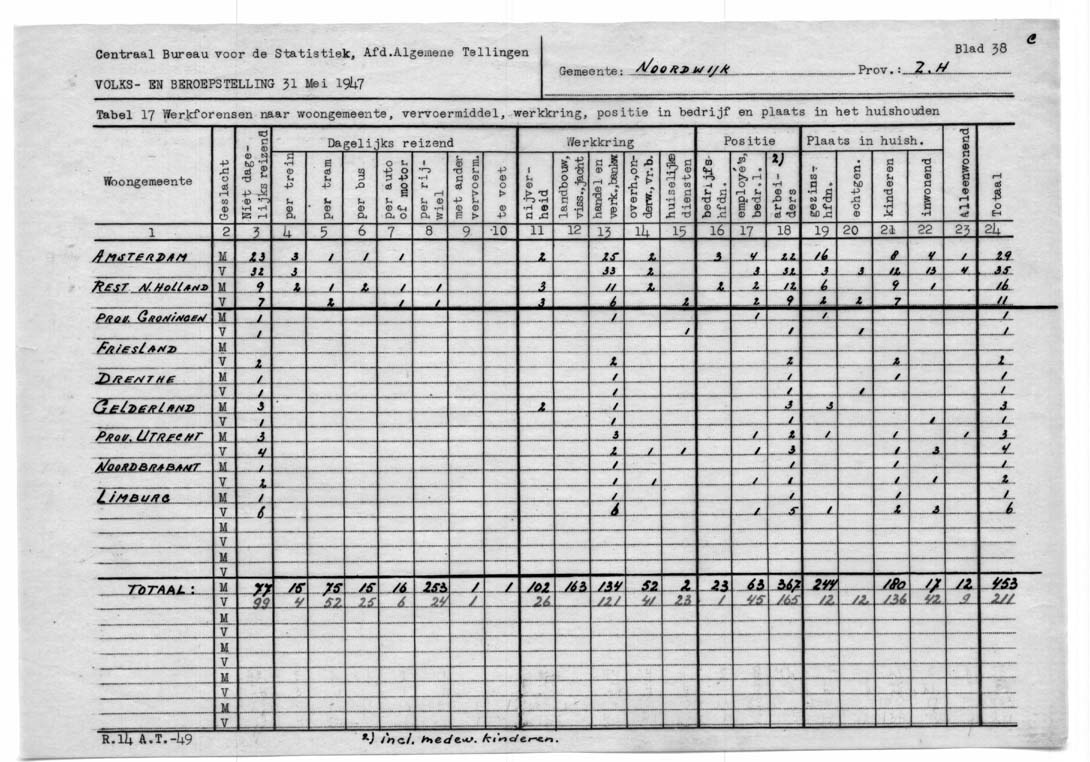 C
Centraal Bureau voor de Statistiek, Afd.Algemene Tellingen
Blad 38
Gemeente: NOORDWIJK Prov.: Z.H
VOLKS- EN BEROEPSTELLING 31 Mei 1947
Tabel 17 Werkforensen naar woongemeente, vervoermiddel, werkkring, positie in bedrijf en plaats in het huishouden
Woongemeente Geslacht Niet dage-lijks reizend Dagelijks reizend Werkkring Positie Plaats in huish. Alleenwonend Totaal
per trein per tram per bus per auto of motor per rij-wiel met ander vervoerm. te voet nijver-heid landbouw, viss.,jacht handel en verk.,bankw. overh.on-derw.,vr.b. huiselijke diensten bedrijfs-hfdn. employé's, bedr.l. arbei-ders 2) gezins-hfdn. echtgen. kinderen inwonend
1 2 3 4 5 6 7 8 9 10 11 12 13 14 15 16 17 18 19 20 21 22 23 24
AMSTERDAM M 23 3 1 1 1 2 25 2 3 4 22 16 8 4 1 29
V 32 3 33 2 3 32 3 3 12 13 4 35
REST N. HOLLAND M 9 2 1 2 1 1 3 11 2 2 2 12 6 9 1 16
V 7 2 1 1 3 6 2 2 9 2 2 7 11
PROV. GRONINGEN M 1 1 1 1 1
V 1 1 1 1 1
FRIESLAND M
V 2 2 2 2 2
DRENTHE M 1 1 1 1 1
V 1 1 1 1 1
GELDERLAND M 3 2 1 3 3 3
V 1 1 1 1 1
PROV. UTRECHT M 3 3 1 2 1 1 1 3
V 4 2 1 1 1 3 1 3 4
NOORDBRABANT M 1 1 1 1 1
V 2 1 1 1 1 1 1 2
LIMBURG M 1 1 1 1 1
V 6 6 1 5 1 2 3 6
M
V
M
V
TOTAAL: M 77 15 75 15 16 253 1 1 102 163 134 52 2 23 63 367 244 180 17 12 453
V 99 4 52 25 6 24 1 26 121 41 23 1 45 165 12 12 136 42 9 211
M
V
M
V
M
V
M
V
R.14 A.T.-49 2) incl. medew. kinderen.